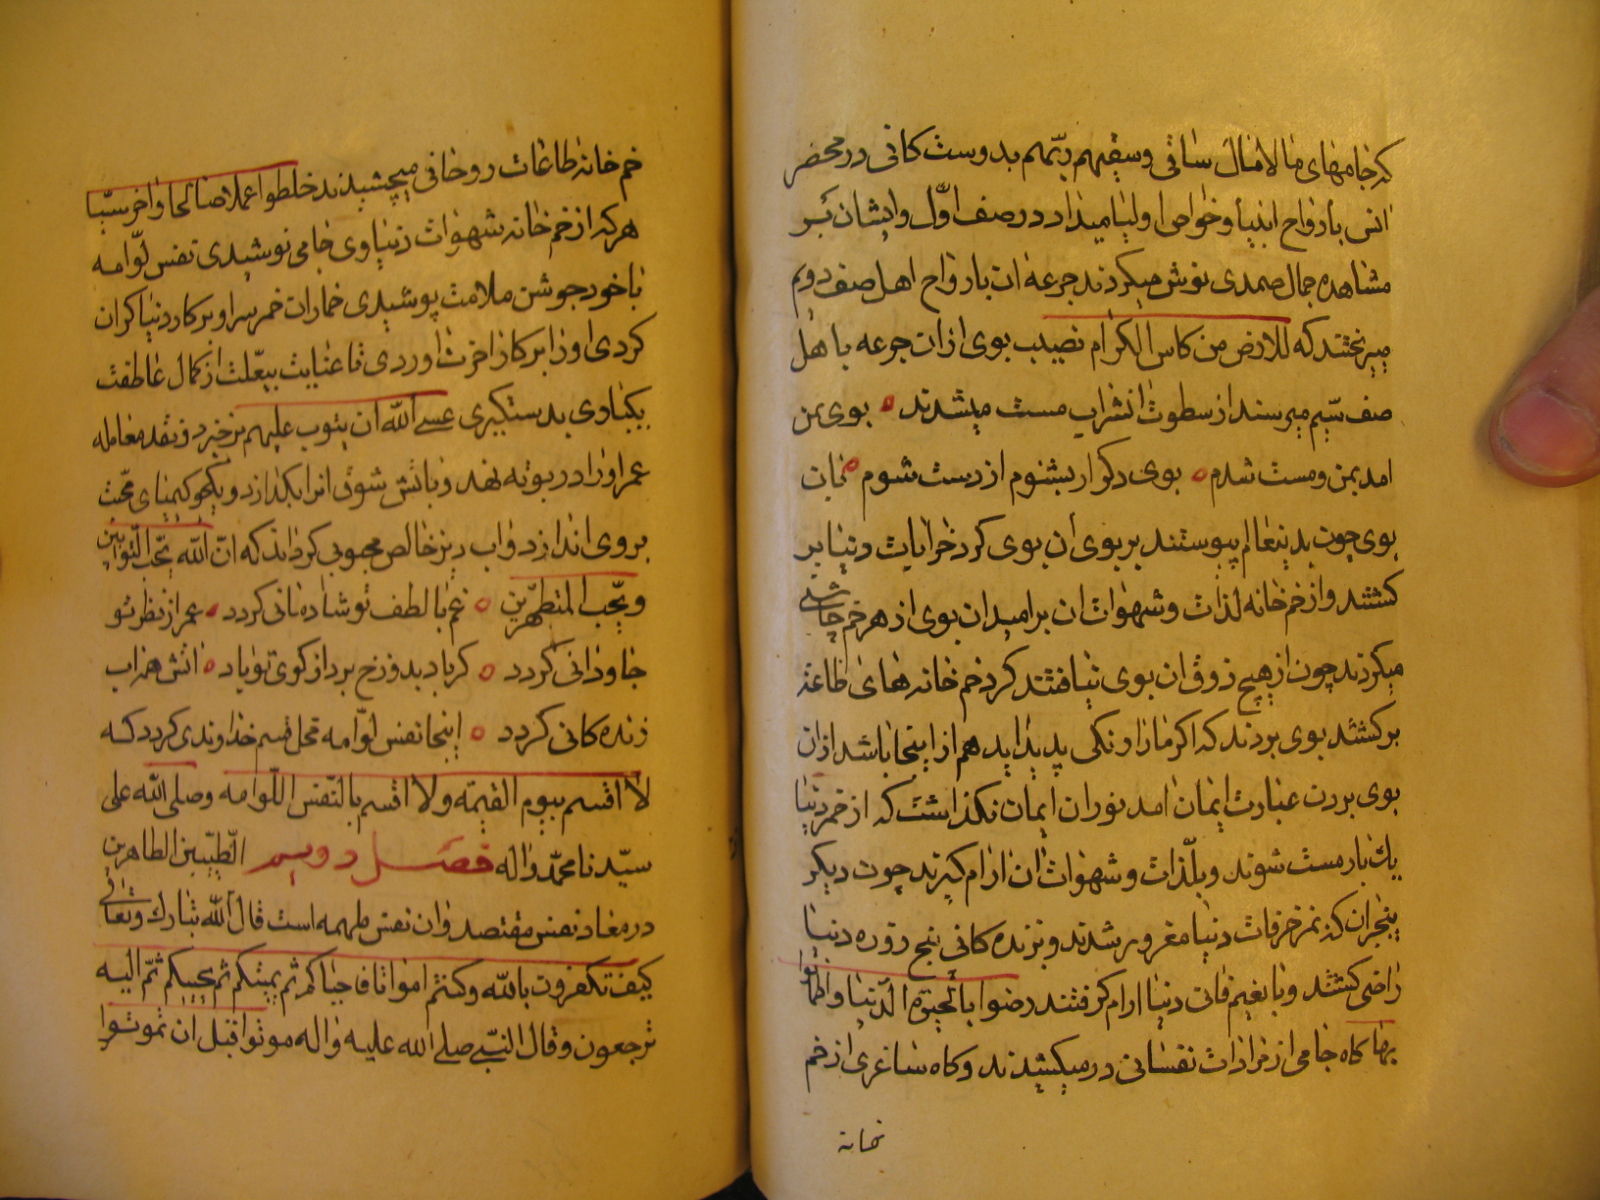 که جامهای مالامال ساقی وسقیهم ربّهم بدوستکانی در محضر
انس بارواح انبیا و خواص اولیا میداد در صف اوّل و ایشان بر
مشاهده جمال صمدی نوش میکردند جرعه ان بارواح اهل صف دویم
میریختند که للارض من کاس الکرام نصیب بوی ازان جرعه باهل
صف سیم میرسند از سطوت انشراب مست میشدند بوی بمن
امد بمن ومست شدم بوی دکر ار بشنوم از دست شوم نجان
بوی چون بدینعالم پیوستند بر بوی ان بوی کرد خرابات دنیا بر
کشتند واز خم خانه لذات وشهوات ان بر امید ان بوی از هر خم چاشنی
میکردند چون از هیچ ذوق ان بوی نیافتند کرد خم خانه های طاعة
برکشتند بوی بردند که اکر ما را ونکی پدید اید هم از اینجا باشد ازان
بوی بردن عبارت ایمان امد نور ان ایمان نکذاشت که از خمر دنیا
یك بار مست شوند وبلّذات وشهوات ان ارام کیرند چون دیکر
بیخبران که بمزخرفات دنیا مغرور شدند وبزنده کانی پنج روزه دنیا
راضی کشتند وبا نعیم فانی دنیا ارام کرفتند رضوا بالحیوة الدّنیا واطمانّوا
بها کاه جامی از مرادات نفسانی در میکشیدند وکاه ساغری از خم
خم خانه طاعات روحانی میچشیدند خلطوا عملا صالحا واخر سیّئا
هر که از خم خانه شهوات دنیاوی جامی نوشیدی نفس لوّامه
با خود جوشن ملامت پوشیدی خمارات خمر سر او بر کار دنیا کران
کردی او را بر کار اخرت اوردی تا عنایت بیعلّت از کمال عاطفت
یکباوی بدستکیری عسی الله ان یتوب علیهم برخیزد ونقد معامله
عمر او را در بوته نهد وباتش شوق انرا بکدازد ویکجو کیمیای محبّت
بروی اندازد واب دیز خالص محبوبی کرداند که انّ الله یحبّ التّوابین
ویحبّ المتطهّرین غم با لطف تو شادمانی کردد عمر از نظر تو
جاودانی کردد کر باد بدوزخ برد از کوی تو باد اتش همه اب
زنده کانی کردد اینجا نفس لوّامه محل قسم خداوندی کردد که
لا اقسم بیوم القیمة ولا اقسم بالنّفس اللّوامه وصلی الله علی
سیّدنا محمّد واله فصل دویم الطّیّبین الطاهرین
در معاد نفس مقتصد وان نفس ملهمه است قال الله تبارك وتعالی
کیف تکفرون بالله وکنتم امواتا فاحیاکم ثم یمیتکم ثم یحییکم ثمّ الیه
ترجعون وقال النبی صلی الله علیه واله موتوا قبل ان تموتوا